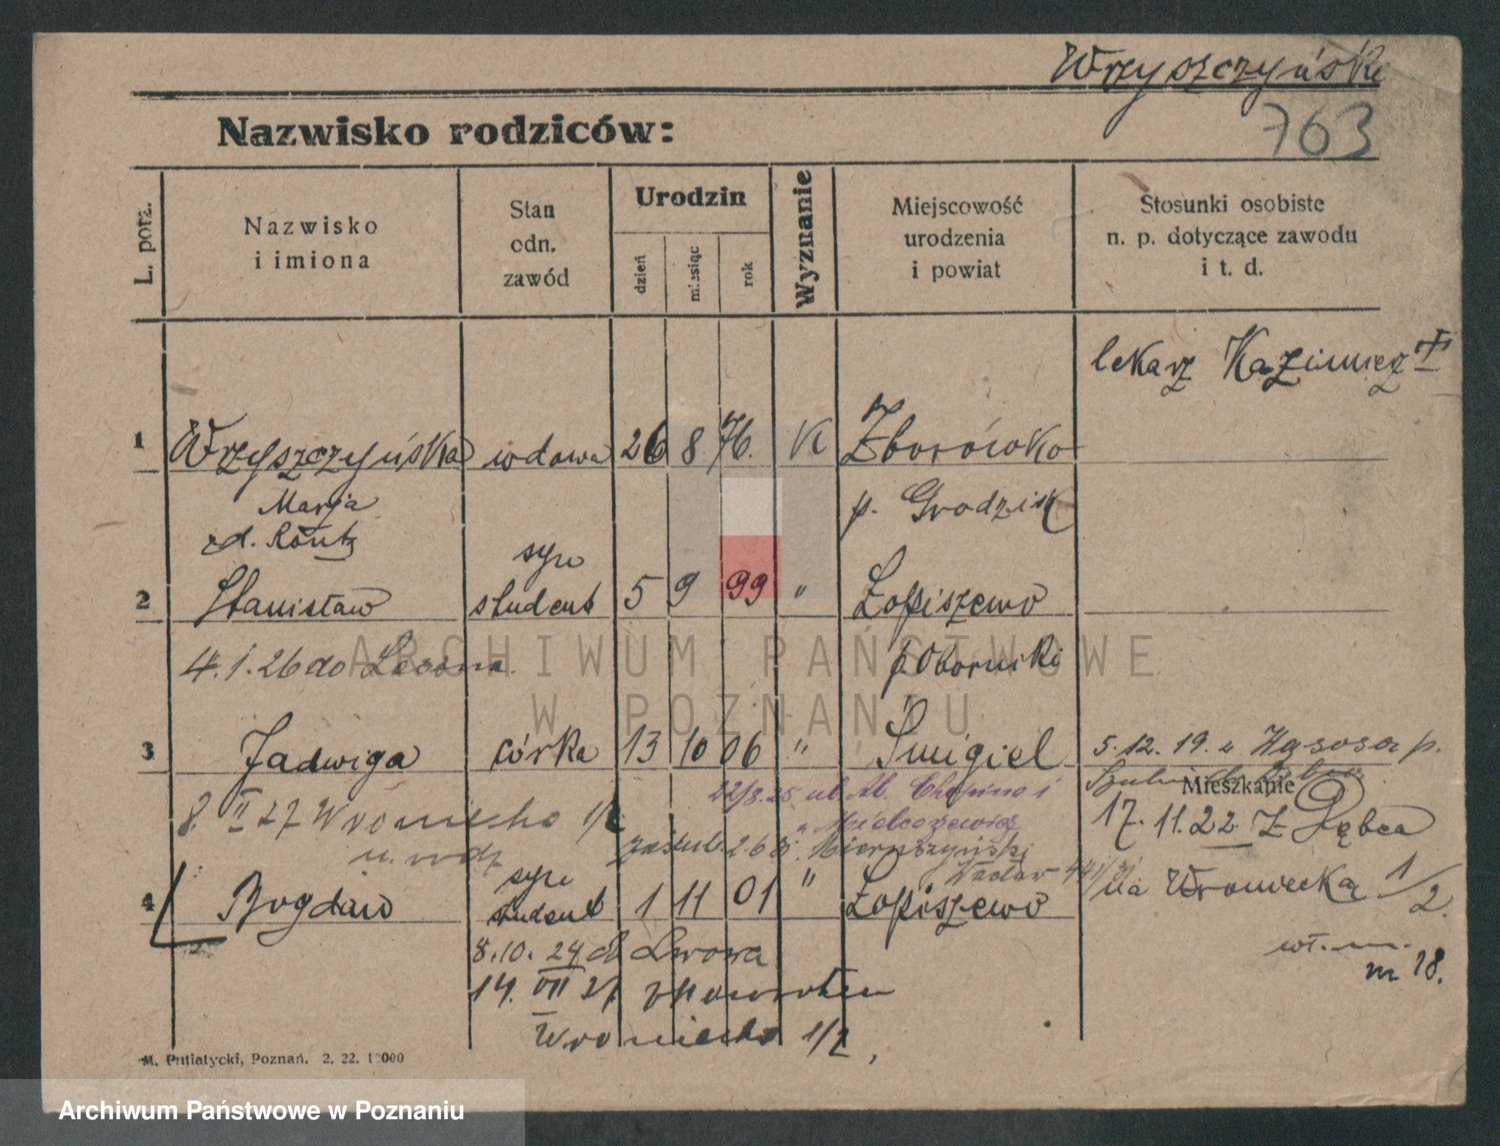 Wrzyszczyński
763
Nazwisko rodziców:
L. porz.
Nazwisko
i imiona
Stan
odn.
zawód
Urodzin
dzień
miesiąc
rok
Wyznanie
Miejscowość
urodzenia
i powiat
Stosunki osobiste
n. p. dotyczące zawodu
i t. d.
lekarz Kazimierz +
1 Wrzyszczyńska wdowa 26 8 76. K Zborówko
Marja p. Grodzisk
zd.
syn
2 Stanisław student 5 9 99 " Łopiszewo
4.1.26 do p. Obornicki
3 Jadwiga córka 13 10 06 " Śmigiel 5.12.19. z Wąsosz p.
Mieszkanie
22/8.25 ul.
8. II 27 Wroniecka 1/2 17.11.22 z Dębca
zaślub.
syn na Wroniecką 1/2.
4 Bogdan student 1 11 01 " Łopiszewo
8.10.24 do Lwowa
m 18.
14. VII 27 z powrotem
Wroniecka 1/2,
M. Putiatycki, Poznań. 2. 22. 10000
ARCHIWUM PAŃSTWOWE
W POZNANIU
Archiwum Państwowe w Poznaniu